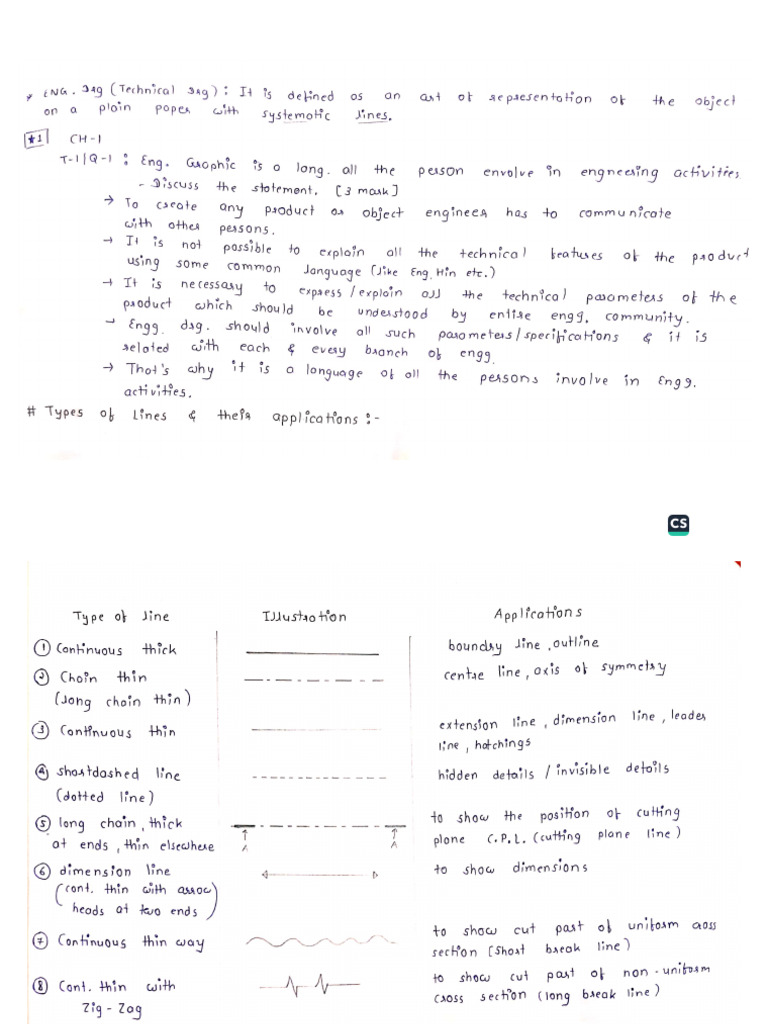 * ENG. drg (Technical drg) : It is defined as an art of representation of the object
on a plain paper with systematic lines.
*1 CH-1
T-1/Q-1 : Eng. Graphic is a lang. all the person envolve in engneering activities
- Discuss the statement. [3 mark]
→ To create any product or object engineer has to communicate
with other persons.
→ It is not possible to explain all the technical features of the product
using some common language (like Eng, Hin etc.)
→ It is necessary to express/explain all the technical parameters of the
product which should be understood by entire engg. community.
→ Engg. drg. should involve all such parameters/specifications & it is
related with each & every branch of engg.
→ That's why it is a language of all the persons involve in Engg.
activities.
# Types of Lines & their applications :-
CS
Type of line Illustration Applications
① Continuous thick boundry line, outline
② Chain thin centre line, axis of symmetry
(long chain thin)
③ Continuous thin extension line, dimension line, leader
line, hatchings
④ shortdashed line hidden details / invisible details
(dotted line)
⑤ long chain, thick to show the position of cutting
at ends, thin elsewhere plane C.P.L. (cutting plane line)
A A
⑥ dimension line to show dimensions
(cont. thin with arrow
heads at two ends)
⑦ Continuous thin way to show cut part of uniform coss
section (Short break line)
⑧ Cont. thin with to show cut part of non-uniform
Zig-Zag cross section (long break line)